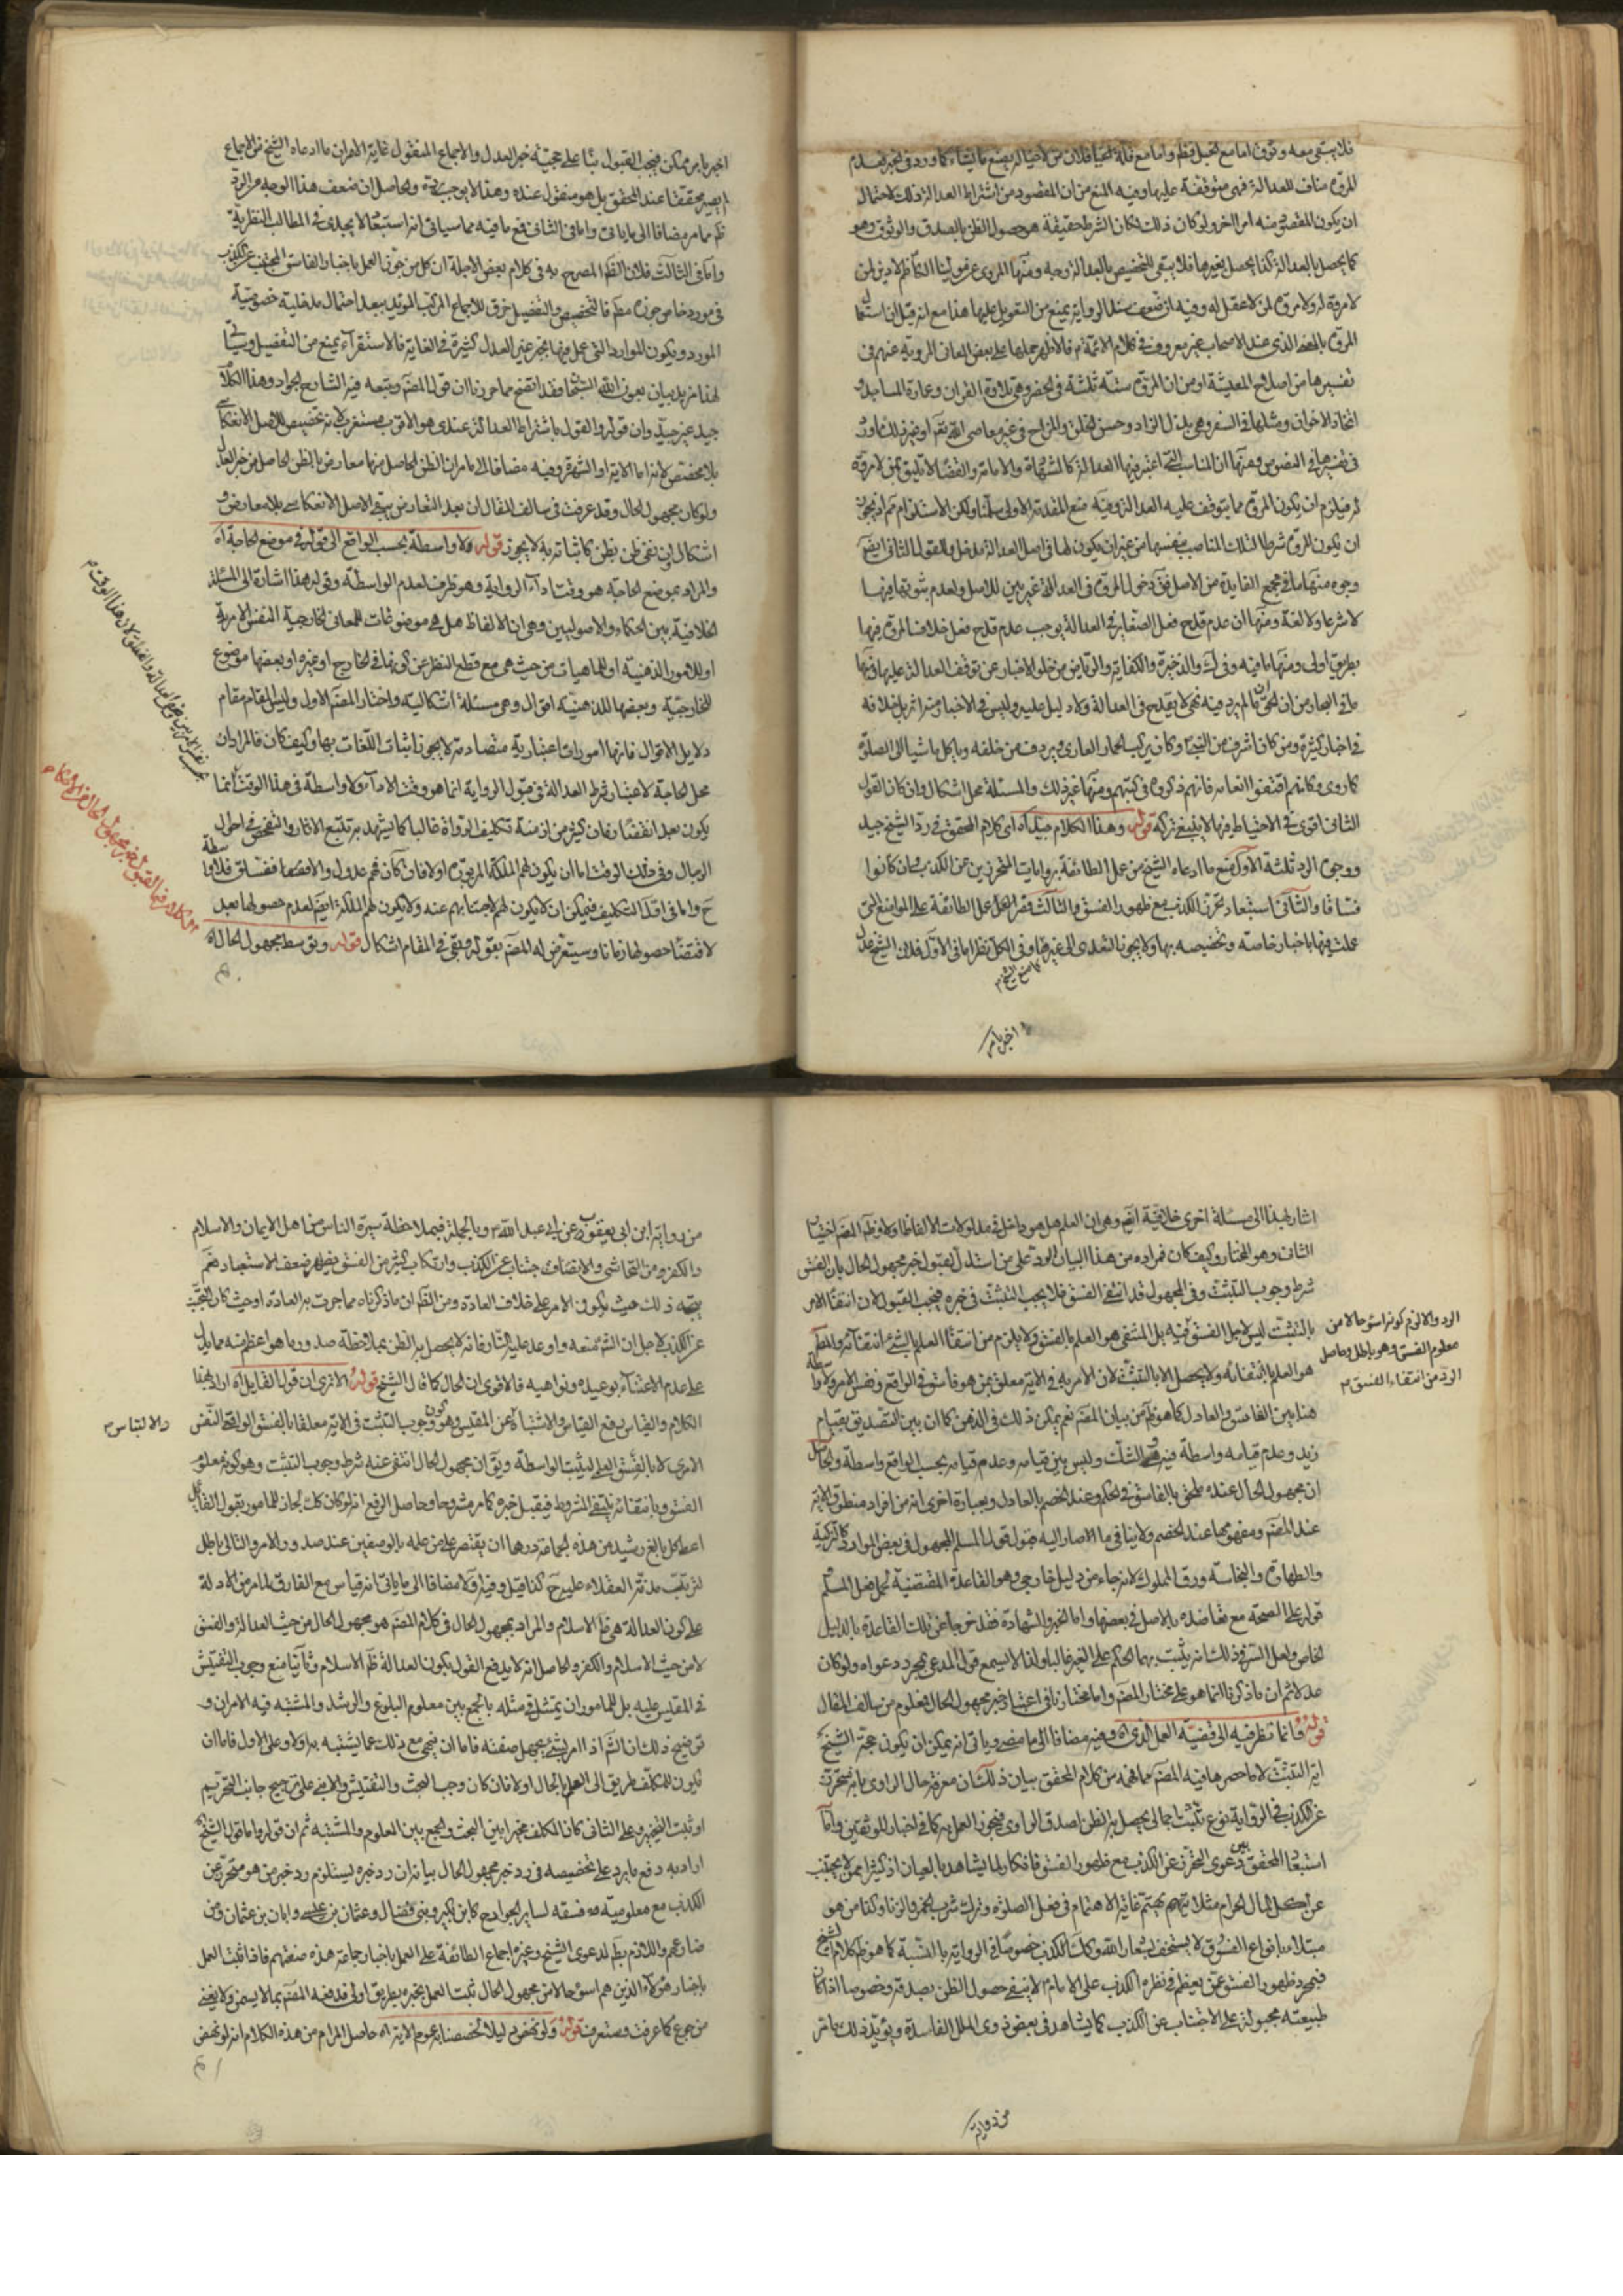 فلا يبقى معه وثوق اما مع الخبل فظ واما مع قلة الحيا فلان من لا حيا له يصنع ما يشاء كما ورد في الخبر فعدم
المروة مناف للعدالة فهى متوقفة عليها وفيه المنع من ان المقصود من اشتراط العدالة ذلك لاحتمال
ان يكون المقصود منه امرا اخر ولو كان ذلك لكان الشرط حقيقة هو حصول الظن بالصدق والوثوق وهو
كما يحصل بالعدالة كذا يحصل بغيرها فلا يبقى للتخصيص بالعدالة وجه ومنها المروى عن مولينا الكاظم لا دين لمن
لا مروة له ولا مروة لمن لا عقل له وفيه ان ضعف سند الرواية يمنع من التعويل عليها هذا مع انه قيل ان استعمال
المروة بالمعنى الذى عند الاصحاب غير معروف في كلام الائمة فالاظهر حملها على بعض المعان المروية عنهم في
تفسيرها من اصلاح المعيشة او من ان المروة ستة ثلثة في الحضر وهى تلاوة القران وعمارة المساجد و
اتخاذ الاخوان ومثلها في السفر وهى بذل الزاد وحسن الخلق والمزاح في غير معاصى الله تعم او غير ذلك مما ورد
في تفسيرها في النصوص ومنها ان المناسب التى اعتبر فيها العدالة كالشهادة والامامة والقضا لا تليق بمن لا مروة
له فيلزم ان يكون المروة مما يتوقف عليه العدالة وفيه منع المقدمة الاولى سلمنا ولكن الاستلزام مم اذ يجوز
ان يكون المروة شرطا لتلك المناصب بنفسها من غير ان يكون لها في اصل العدالة مدخل وللقول الثانى ايضا
وجوه منها ما في مجمع الفايدة من الاصل فتى دخول المروة في العدالة غير بين للاصل ولعدم ثبوتها فيها
لا شرعا ولا لغة ومنها ان عدم قدح فعل الصغاير في العدالة يوجب عدم قدح فعل خلاف المروة فيها
بطريق اولى ومنها ما فيه وفى ك والذخيرة والكفاية والرياض من خلو الاخبار عن توقف العدالة عليها ومنها
ما في البحار من ان الحق ان ما لم يرد فيه نهى لا يقدح في العدالة ولا دليل عليه وليس في الاخبار منه اثر بل خلافه
في اخبار كثيرة ومن كان اشرف من النبى وكان يركب الحمار العارى ويردف من خلفه وياكل ماشيا الى الصلوة
كما روى وكانهم اقتفوا العامة فانهم ذكروه في كتبهم ومنها غير ذلك والمسئلة محل اشكال وان كان القول
الثانى اقوى في الاحتياط فيها لا ينبغى تركه قوله وهذا الكلام جيد آه اى كلام المحقق في رد الشيخ جيد
ووجوه الرد ثلثة الاول منع ما ادعاه الشيخ من عمل الطائفة بروايات المتحرزين عن الكذب وان كانوا
فساقا والثانى استبعاد تحرز الكذب مع ظهور الفسق والثالث قصر العمل عمل الطائفة على المواضع التى
عملت فيها باخبار خاصة وتخصيصه بها ولا يجوز التعدى الى غيرها وفى الكل نظر اما في الاول فلان الشيخ عدل
كما منع الشيخ م
اخبر بامر
اخبر بامر ممكن فيجب القبول بنا على حجية خبر العدل والاجماع المنقول غاية الامر ان ما ادعاه الشيخ من الاجماع
لم يصير محققا عند المحقق بل هو منقول عنده وهذا لا يوجب رده والحاصل ان ضعف هذا الوجه من الرد
ظهر مما مر مضافا الى ما ياتى واما في الثانى فمع ما فيه مما سياتى انه استبعاد لا يجدى في المطالب النظرية
واما في الثالث فلان الظ المصرح به في كلام بعض الاجلة ان كل من جوز العمل باخبار الفاسق المجتنب عن الكذب
في مورد خاص جوزه مطم فالتخصيص والتفصيل خرق للاجماع المركب المؤيد ببعد احتمال مدخلية خصوصية
المورد ويكون الموارد التى عمل فيها بخبر غير العدل كثيرة في الغاية فالاستقراء يمنع من التفصيل وسياتى
لهذا مزيد بيان بعون الله انشا فقد اتضح مما حررنا ان قول المضم وتبعه فيه الشارح الجواد وهذا الكلام
جيد غير جيد وان قوله والقول باشتراط العدالة عندى هو الاقرب مستغرب لانه تخصيص للاصل الانعكاسى
بلا مخصص
ولو كان مجهول الحال وقد عرفت في سالف المقال ان بعد التعارض يبقى الاصل الانعكاسى بلا معارض و
اشكال ان نفى ظن بظن كاثباته به لا يجوز قوله فلا واسطة بحسب الواقع الى قوله في موضع الحاجة آه
والمراد بموضع الحاجة هو وقت اداء الرواية وهو ظرف لعدم الواسطة وقوله هذا اشارة الى المسئلة
الخلافية بين الحكماء والاصوليين وهى ان الالفاظ هل هى موضوعات للمعانى الخارجية النفس الامرية
او للامور الذهنية او للماهيات من حيث هى مع قطع النظر عن كونها في الخارج او غيره او بعضها موضوع
للخارجية وبعضها للذهنية اقوال وهى مسئلة اشكالية واختار المضم الاول وليس المقام مقام
دلايل الاقوال فانها امورات اعتبارية متصادمة لا يجوز اثبات اللغات بها وكيف كان فالمراد ان
محل الحاجة لاعتبار شرط العدالة في قبول الرواية انما هو وقت الاداء ولا واسطة في هذا الوقت لانها
يكون بعد انقضا زمان كثير من ازمنة تكليف الرواة غالبا كما يشهد به تتبع الاثار والتفحص في احوال
الرجال وفى ذلك الوقت اما ان يكون لهم الملكة المزبورة او لا فان كان فهم عدول والا فهم فساق فلا واسطة
ح واما في اول التكليف فيمكن ان لا يكون لهم لاجتنابهم عنه ولا يكون لهم الملكة ايضم لعدم حصولها بعد
لاقتضا حصولها زمانا وسيتعرض له المضم بقوله وبقى في المقام اشكال قوله وبق سط مجهول الحال آه
اشار بهذا الى مسئلة اخرى خلافية ايضم وهى ان العلم هل هو داخل في مدلولات الالفاظ او لا وظ المضم اختيار
الثانى وهو المختار وكيف كان فمراده من هذا البيان الرد على من استدل لقبول خبر مجهول الحال بان الفسق
شرط وجوب التثبت وفى المجهول قد انتفى الفسق فلا يجب التثبت في خبره فيجب القبول لان انتفا الامر
بالتثبت ليس لاجل الفسق فيه بل المنتفى هو العلم بالفسق ولا يلزم من انتفا العلم بالشئ انتفائه والمطم
هو العلم بانتفائه ولا يحصل الا بالتثبت لان الامر به في الاية معلق بمن هو فاسق في الواقع ونفس الامر ولا واسطة
هنا بين الفاسق والعادل كما هو ظ من بيان المضم نعم يمكن ذلك في الذهن كما ان بين التصديق بقيام
زيد وعدم قيامه واسطة فيه وهو الشك وليس بين قيامه وعدم قيامه بحسب الواقع واسطة والحاصل
ان مجهول الحال عنده ملحق بالفاسق في الحكم وعند الخصم بالعادل وبعبارة اخرى انه من افراد منطوق الاية
عند المضم ومفهومها عند الخصم ولا ينافى ما الاصار اليه قبول قول المسلم المجهول في بعض الموارد كالتزكية
والطهارة والنجاسة ورق المملوك لانه جاء من دليل خارجى وهو القاعدة المقتضية لحمل فعل المسلم
قوله على الصحة مع تعاضده بالاصل في بعضها واما الخبر والشهادة فقد خرجا عن تلك القاعدة بالدليل
الخاص ولعل السر في ذلك انه يثبت بهما الحكم على الغير غالبا ولذا لا يسمع قول المدعى بمجرد دعواه ولو كان
عدلا ثم ان ما ذكرنا انما هو على مختار المضم واما مختارنا في اعتبار خبر مجهول الحال فمعلوم من سالف المقال
قوله وانما نظر فيه الى قضية العمل الذى آه وفيه مضافا الى ما مضى وياتى انه يمكن ان يكون حجة الشيخ
اية التثبت لا ما حصرها فيه المضم مما فهمه من كلام المحقق بيان ذلك ان معرفة حال الراوى بانه متحرز
عن الكذب في الرواية نوع تثبت اجمالى يحصل به الظن بصدق الراوى فيجوز العمل به كما في اخبار الموثقين واما
استبعاد المحقق من دعوى التحرز عن الكذب مع ظهور الفسق فانكار لما يشاهد بالعيان اذ كثيرا ممن لا يجتنب
عن اكل المال الحرام مثلا نريهم يهتم غاية الاهتمام في فعل الصلوة وترك شرب الخمر والزنا وكذا من هو
مبتلا بانواع الفسوق لا يستخف بشعار الله وكك الكذب خصوصا في الرواية بالنسبة كما هو ظ كلام الشيخ
فبمجرد ظهور الفسق عمن يعظم في نظره الكذب على الامام لا ينفى حصول الظن بصدقه وخصوصا اذا كان
طبيعته مجبولة على الاجتناب عن الكذب كما يشاهد في بعض ذوى الملل الفاسدة ويؤيد ذلك ما مر
الرد والا لزم كونه اسوء حالا من
معلوم الفسق وهو باطل وحاصل
الرد من انتفاء الفسق م
من رواية
من رواية ابن ابى يعقوب عن ابى عبد الله وبالجملة فبملاحظة سيرة الناس من اهل الايمان والاسلام
والكفر ومن التحاشى والاجتناب عن الكذب وارتكاب كثير من الفسق يظهر ضعف الاستبعاد نعم
يتجه ذلك حيث يكون الامر على خلاف العادة ومن الظ ان ما ذكرناه مما جرت به العادة او حيث كان التحرز
عن الكذب لاجل ان الله منعه واوعد عليه النار فانه لا يحصل به الظن بملاحظة صدور ما هو اعظم منه مما يدل
على عدم الاعتناء بوعيده ونواهيه فالاقوى ان الحال كما قال الشيخ قوله الا ترى ان قول القايل آه اراد بهذا
الكلام والقياس رفع القياس والاشتباه عن المقيس وهو كون وجوب التثبت في الاية معلقا بالفسق الواقعى النفس
الامرى لا بالفسق العلمى ليثبت الواسطة ويق ان مجهول الحال انتفى عنه شرط وجوب التثبت وهو كونه معلوم
الفسق وبانتفائه ينتفى المشروط فيقبل خبره كما مر مشروحا وحاصل الرفع انه لو كان كك لجاز للمامور بقول القايل
اعط كل بالغ رشيد من هذه الجماعة درهما ان يقتصر على من علمه بالوصفين عند صدور الامر والتالى باطل
لترتب مذمة العقلاء عليه ح كذا قيل وفيه اولا مضافا الى ما ياتى انه قياس مع الفارق لما مر من الادلة
على كون العدالة هى ظ الاسلام والمراد بمجهول الحال في كلام المضم هو مجهول الحال من حيث العدالة والفسق
لا من حيث الاسلام والكفر والحاصل انه لا يدفع القول بكون العدالة ظ الاسلام وثانيا منع وجوب التفتيش
في المقيس عليه بل للمامور ان يمتثل في مثله بالجمع بين معلوم البلوغ والرشد والمشتبه فيه الامران و
توضيح ذلك ان الشارع اذا امر بشئ وجهل صفته فاما ان ينجى مع ذلك عما يشتبه به او لا وعلى الاول فاما ان
يكون للمكلف طريق الى العلم بالحال او لا فان كان وجب البحث والتفتيش والا بنى على ترجيح جانب التحريم
او ثبت التخيير وعلى الثانى كان المكلف مخيرا بين البحث والجمع بين المعلوم والمشتبه ثم ان قوله واما قول الشيخ
اراد به دفع ما يرد على تخصيصه في رد خبر مجهول الحال بيانه ان رد خبره يستلزم رد خبر من هو متحرز عن
الكذب مع معلومية فسقه لساير الجوارح كابن بكير وبنى فضال وعثمان بن عيسى وابان بن عثمان ومن
ضارعهم واللازم بط لدعوى الشيخ وغيره اجماع الطائفة على العمل باخبار جماعة هذه صفتهم فاذا ثبت العمل
باخبار هؤلاء الذين هم اسوء حالا من مجهول الحال ثبت العمل بخبره بطريق اولى فدفعه المضم بما لا يسمن ولا يغنى
من جوع كما عرفت وستعرف قوله ولو نهض دليلا لخصصنا به عموم الاية آه حاصل المرام من هذه الكلام انه لو نهض
والالتباس م